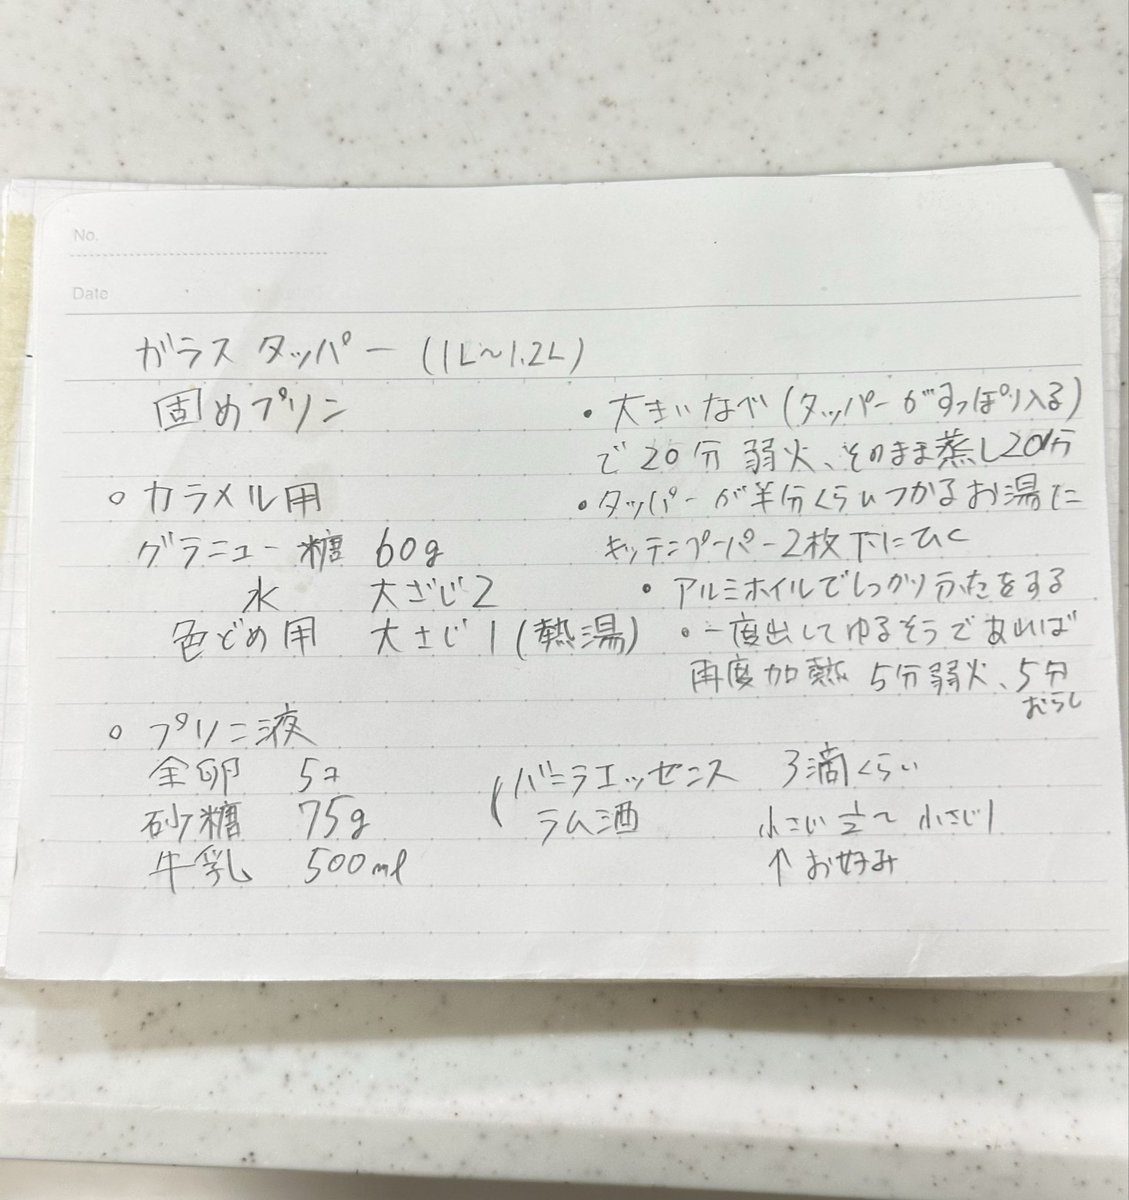 No.
Date
ガラスタッパー (1L～1.2L)
固めプリン
○ カラメル用
グラニュー糖 60g
水 大さじ2
色どめ用 大さじ1(熱湯)
○ プリン液
全卵 5コ
砂糖 75g
牛乳 500ml
・大きいなべ(タッパーがすっぽり入る)
で20分弱火、そのまま蒸し20分
・タッパーが半分くらいつかるお湯に
キッチンペーパー2枚下にひく
・アルミホイルでしっかりふたをする
・一度出してゆるそうであれば
再度加熱 5分弱火、5分
むらし
(バニラエッセンス 3滴くらい
ラム酒 小さじ1/2～小さじ1
↑お好み